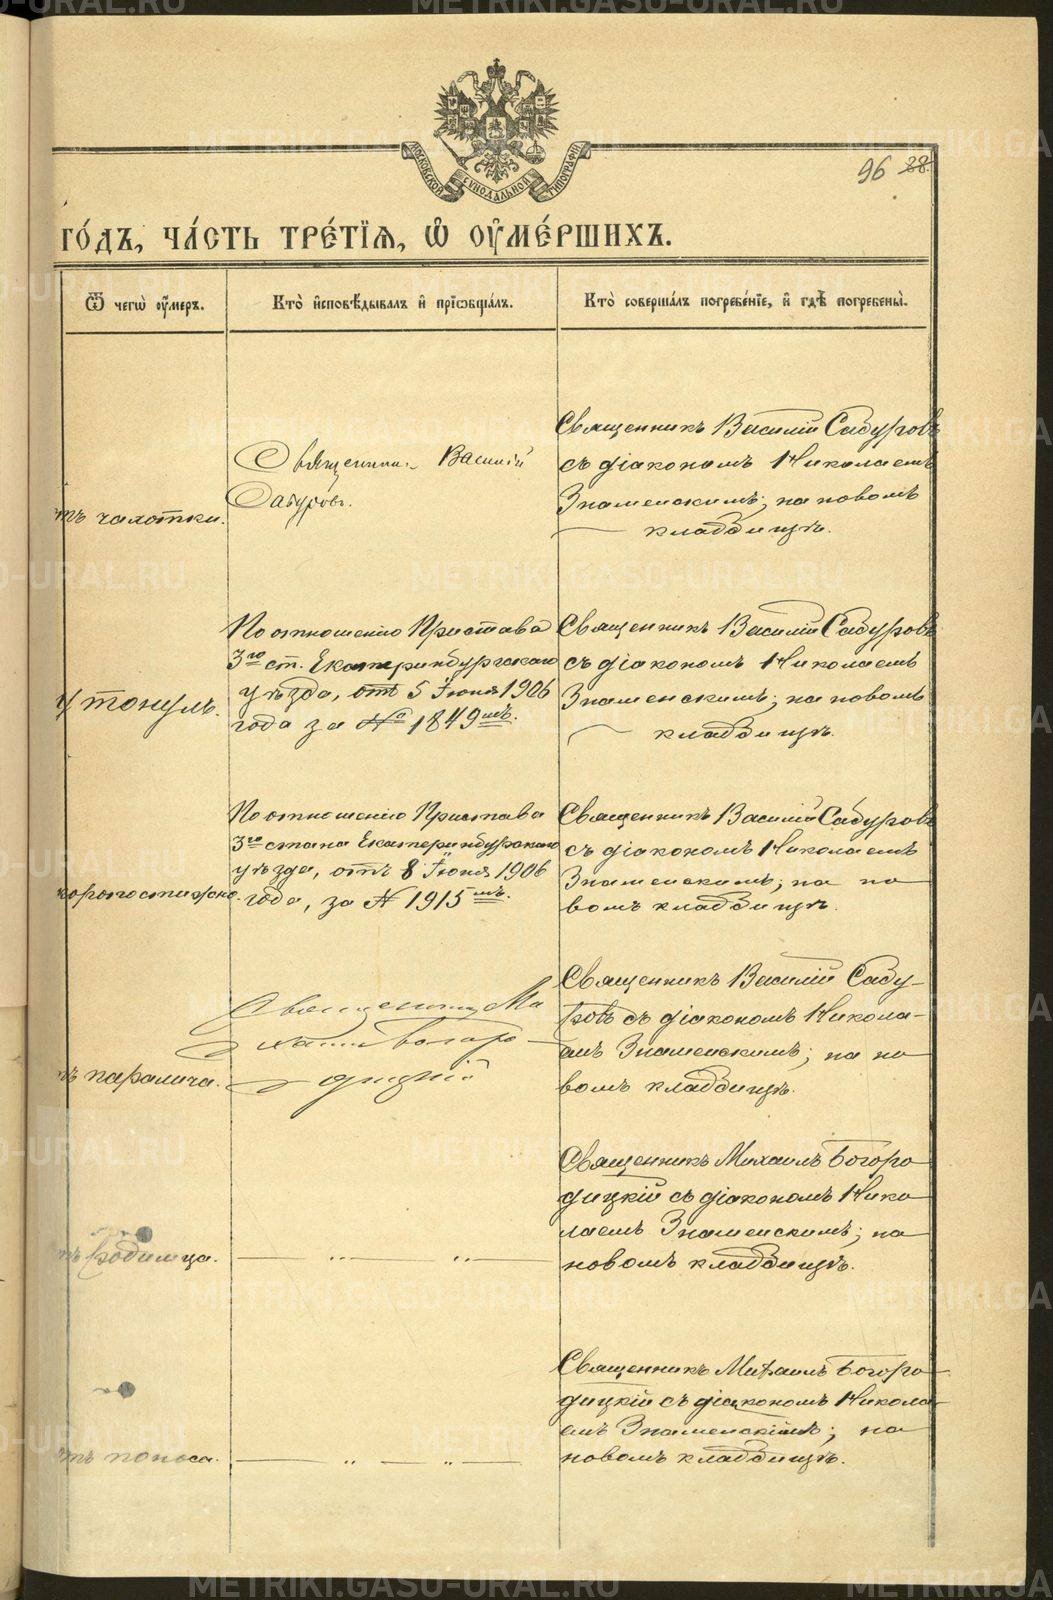 МОСКОВСКОЙ СѴНОДАЛЬНОЙ ТИПОГРАФІИ
96 28.
ГО́ДЪ, ЧА́СТЬ ТРЕ́ТІѦ, Ѡ ОУМЕ́РШИХЪ.
Ѿ чегѡ̀ оу́меръ.
Кто̀ и҆сповѣ́дывалъ и҆ прїѡбща́лъ.
Кто̀ соверша́лъ погребе́нїе, и҆ гдѣ̀ погребены̀.
тъ чахотки.
Священник Василій
Сабуровъ.
Священникъ Василій Сабуровъ
съ діакономъ Николаемъ
Знаменскимъ; на новомъ
кладбищѣ.
Утонулъ.
По отношенію Пристава
3го ст. Екатеринбургскаго
уѣзда, отъ 5 Іюня 1906
года за № 1849мъ.
Священникъ Василій Сабуровъ
съ діакономъ Николаемъ
Знаменскимъ; на новомъ
кладбищѣ.
коропостижно.
По отношенію Пристава
3го стана Екатеринбургскаго
уѣзда, отъ 8 Іюня 1906
года, за № 1915мъ.
Священникъ Василій Сабуровъ
съ діакономъ Николаемъ
Знаменскимъ; на но
вомъ кладбищѣ.
тъ паралича.
Священникъ Ми
хаилъ Богоро
дицкій
Священникъ Василій Сабу-
ровъ съ діакономъ Никола-
емъ Знаменскимъ; на но
вомъ кладбищѣ.
тъ родимца.
Священникъ Михаилъ Богоро
дицкій съ діакономъ Нико
лаемъ Знаменскимъ; на
новомъ кладбищѣ.
тъ поноса.
Священникъ Михаилъ Богоро-
дицкій съ діакономъ Никола-
емъ Знаменскимъ; на
новомъ кладбищѣ.
METRIKI.GASO-URAL.RU